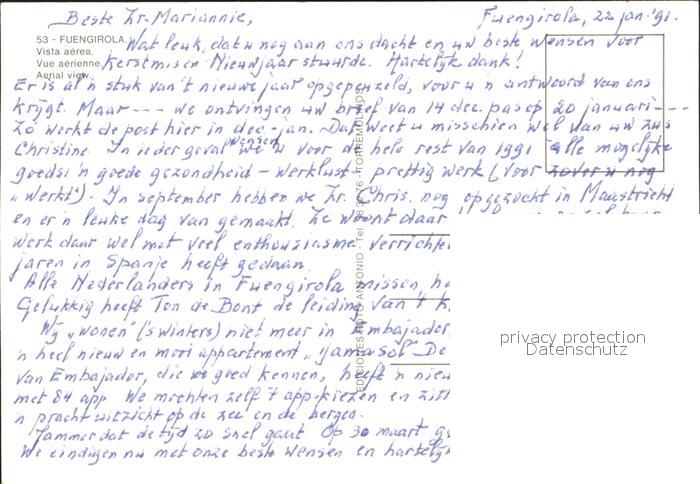 Beste Zr. Mariannie, Fuengirola, 22 jan. '91.
53 - FUENGIROLA
Vista aérea.
Vue aérienne.
Aerial view.
Wat leuk, dat u nog aan ons dacht en uw beste wensen voor
Kerstmis en Nieuwjaar stuurde. Hartelijk dank!
Er is al 'n stuk van 't nieuwe jaar opgepeuzeld, voor u 'n antwoord van ons
krijgt. Maar --- we ontvingen uw brief van 14 dec. pas op 20 januari ---
Zo werkt de post hier in dec.-jan. Dat weet u misschien wel van uw zus
Christine. In ieder geval wensen we u voor de hele rest van 1991 alle mogelijke
goeds: 'n goede gezondheid - werklust - prettig werk (voor zover u nog
"werkt"). In september hebben we Zr. Chris. nog opgezocht in Maastricht
en er 'n leuke dag van gemaakt. Ze woont daar
werk daar wel met veel enthousiasme verrichten
jaren in Spanje heeft gedaan.
Alle Nederlanders in Fuengirola missen, h
Gelukkig heeft Ton de Bont de leiding van 't k
Wij "wonen" ('s winters) niet meer in Embajador
'n heel nieuw en mooi appartement "Yamasol" De
van Embajador, die we goed kennen, heeft 'n nieu
met 84 app. We mochten zelf 't app. kiezen en zitt
'n pracht uitzicht op de zee en de bergen.
Jammer dat de tijd zo snel gaat. Op 30 maart g
We eindigen nu met onze beste wensen en hartelijk
EDICIONES FOTO ANTONIO - Tel. 38 - TORREMOLINOS
privacy protection
Datenschutz